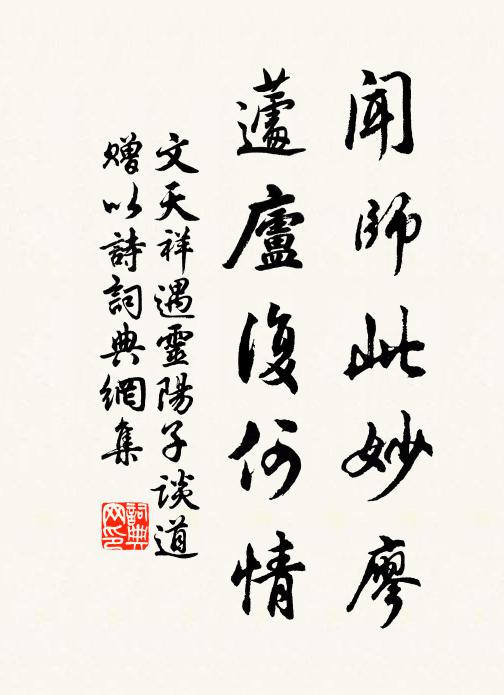 聞師此妙廖
蘧廬復何情
文天祥遇靈陽子談道
贈以詩詞典網集
詞典網印